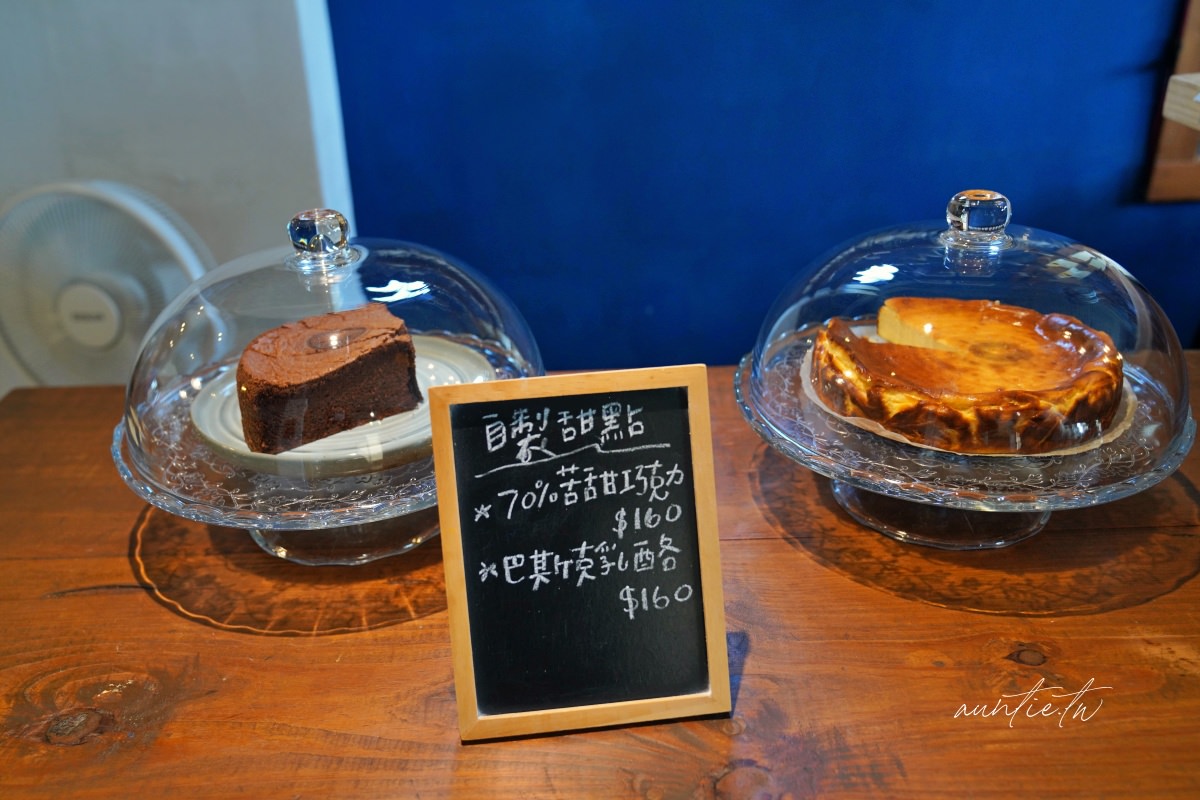 自製甜點
*70%苦甜巧克力
$160
*巴斯克乳酪
$160
auntie.tw